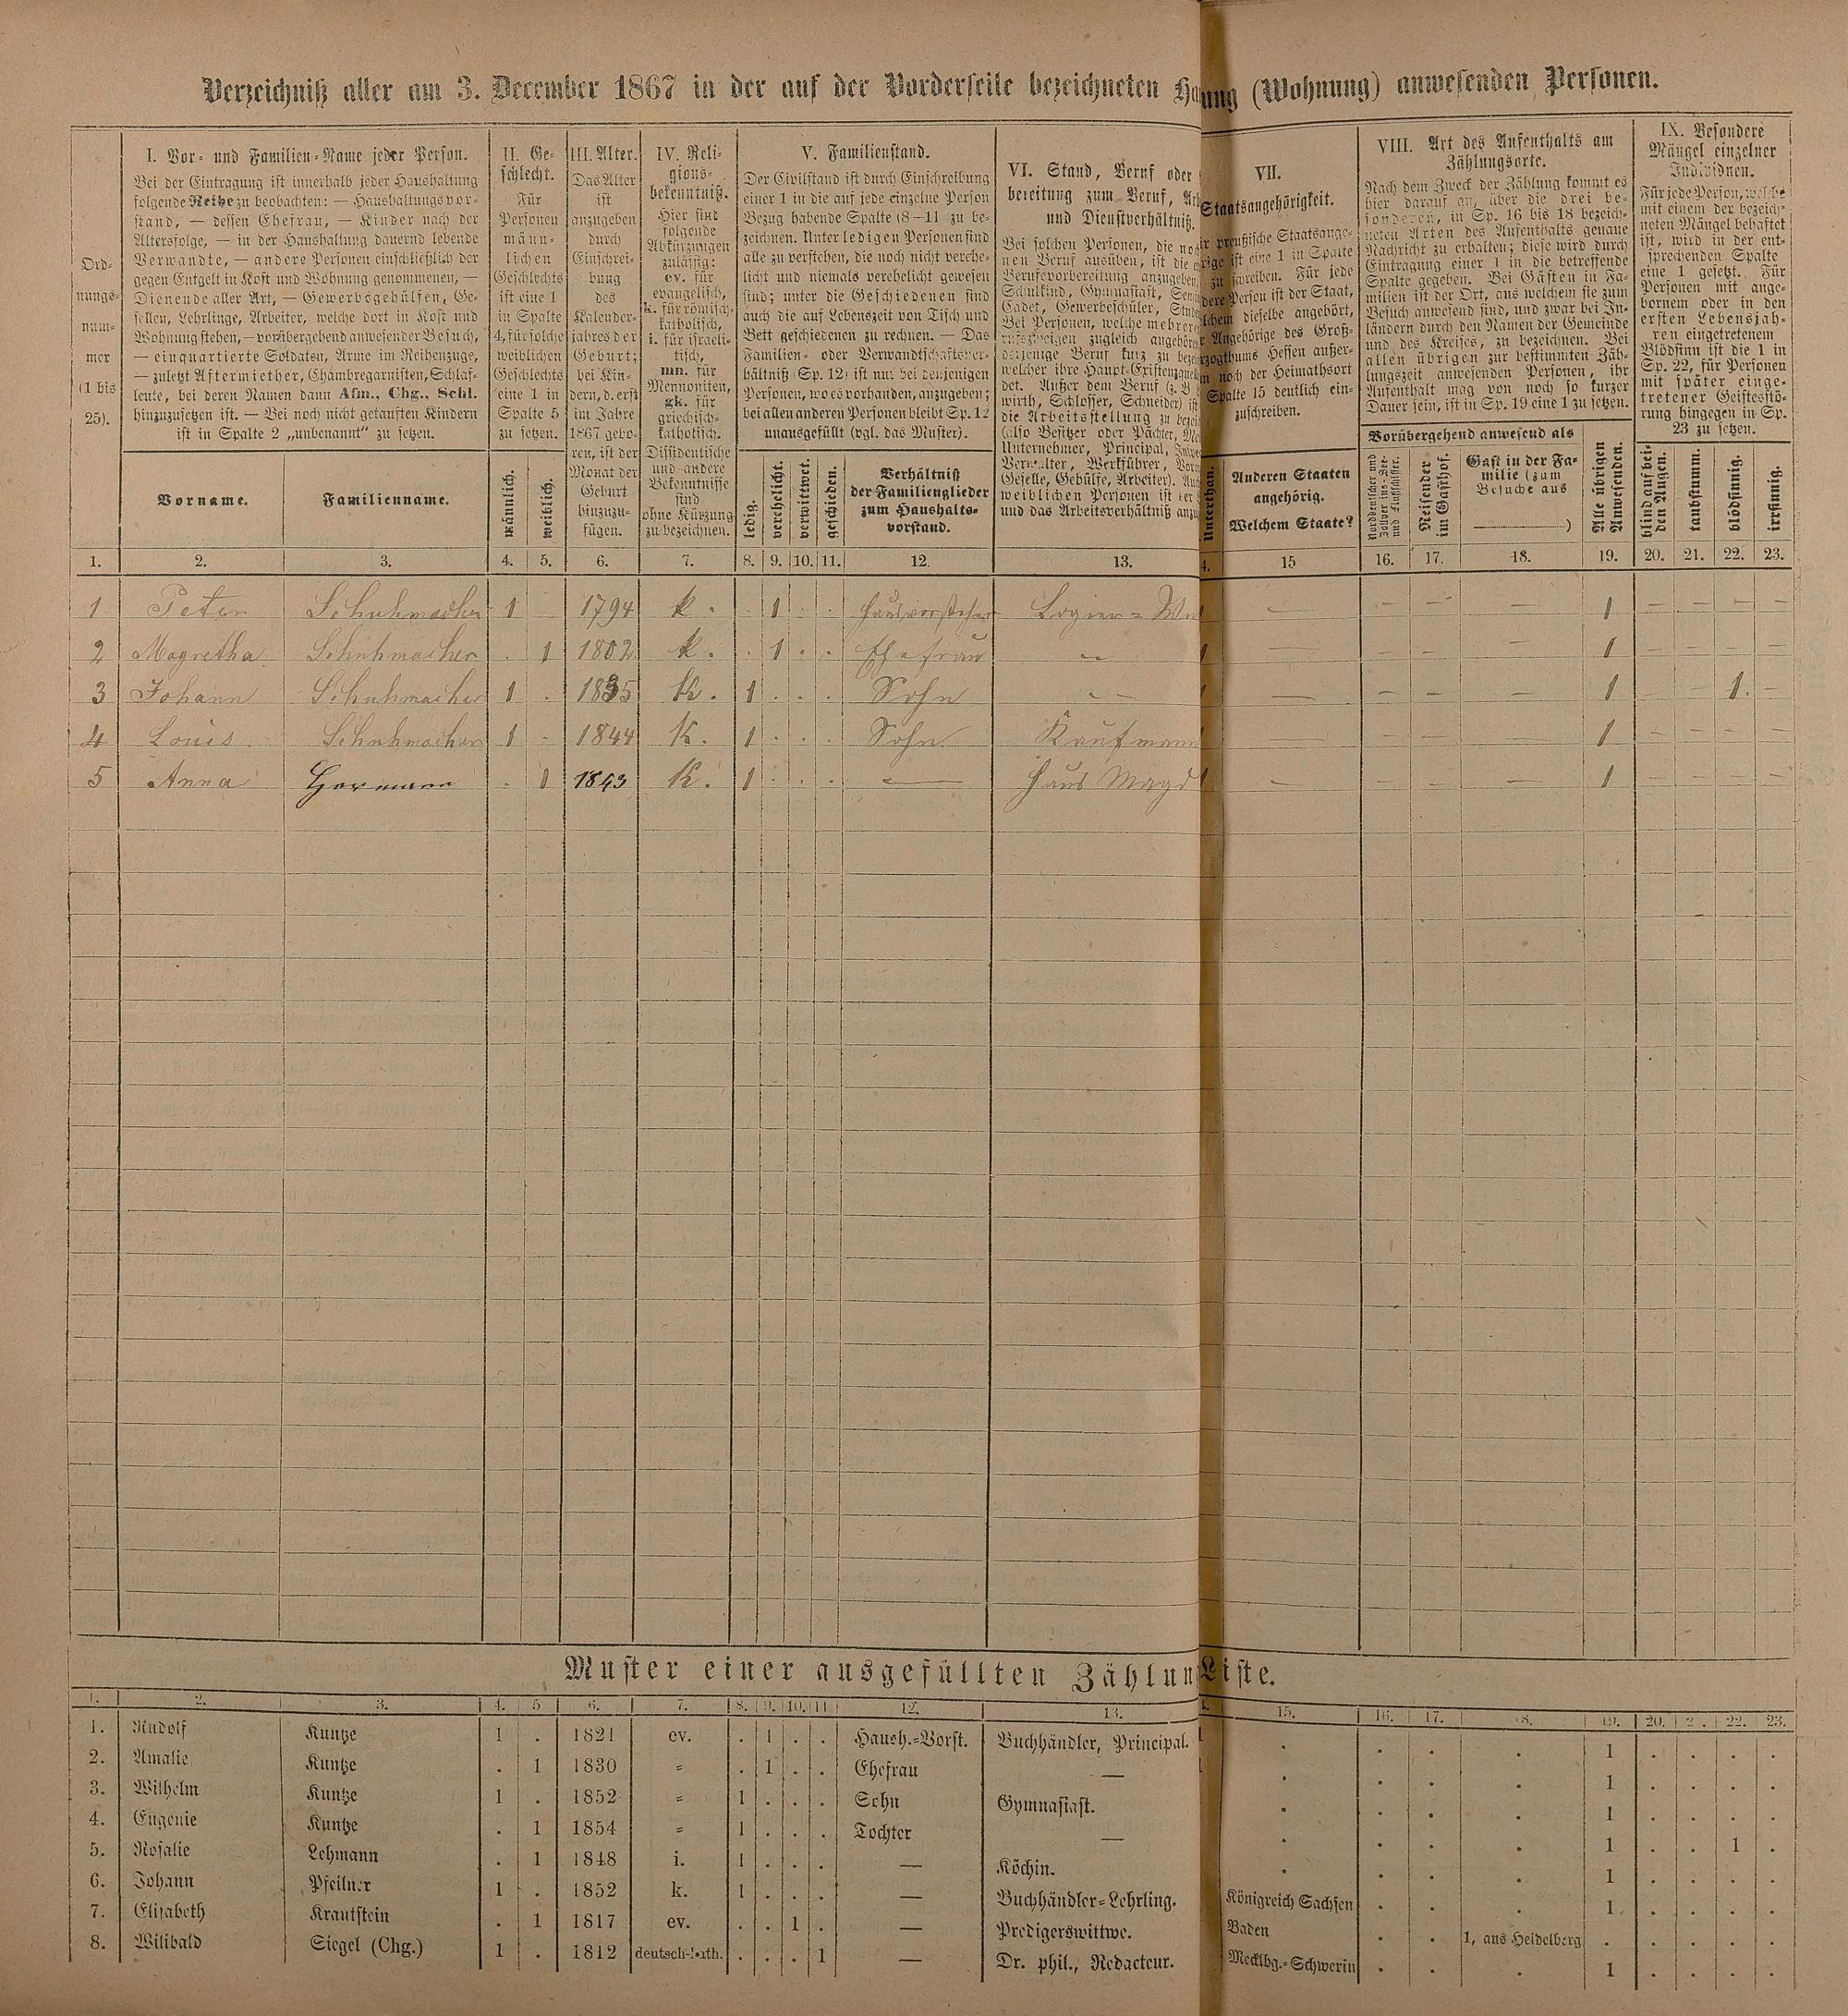 Verzeichniß aller am 3. December 1867 in der auf der Vorderseite bezeichneten Ha ung (Wohnung) anwesenden Personen.
Ord-
nungs-
num-
mer
(1 bis
25).
I. Vor- und Familien-Name jeder Person.
Bei der Eintragung ist innerhalb jeder Haushaltung
folgende Reihe zu beobachten: — Haushaltungsvor-
stand, — dessen Ehefrau, — Kinder nach der
Altersfolge, — in der Haushaltung dauernd lebende
Verwandte, — andere Personen einschließlich der
gegen Entgelt in Kost und Wohnung genommenen, —
Dienende aller Art, — Gewerbsgehülfen, Ge-
sellen, Lehrlinge, Arbeiter, welche dort in Kost und
Wohnung stehen, — vorübergehend anwesender Besuch,
— einquartierte Soldaten, Arme im Reihenzuge,
— zuletzt Aftermiether, Chambregarnisten, Schlaf-
leute, bei deren Namen dann Afm., Chg., Schl.
hinzuzusetzen ist. — Bei noch nicht getauften Kindern
ist in Spalte 2 „unbenannt“ zu setzen.
Vorname.
Familienname.
II. Ge-
schlecht.
Für
Personen
männ-
lichen
Geschlechts
ist eine 1
in Spalte
4, für solche
weiblichen
Geschlechts
eine 1 in
Spalte 5
zu setzen.
männlich.
weiblich.
III. Alter.
Das Alter
ist
anzugeben
durch
Einschrei-
bung
des
Kalender-
jahres der
Geburt;
bei Kin-
dern, d. erst
im Jahre
1867 gebo-
ren, ist der
Monat der
Geburt
hinzuzu-
fügen.
IV. Reli-
gions-
bekenntniß.
Hier sind
folgende
Abkürzungen
zulässig:
ev. für
evangelisch,
k. für römisch-
katholisch,
i. für israeli-
tisch,
mn. für
Mennoniten,
gk. für
griechisch-
katholisch.
Dissidentische
und andere
Bekenntnisse
sind
ohne Kürzung
zu bezeichnen.
V. Familienstand.
Der Civilstand ist durch Einschreibung
einer 1 in die auf jede einzelne Person
Bezug habende Spalte (8—11 zu be-
zeichnen. Unter ledigen Personen sind
alle zu verstehen, die noch nicht verehe-
licht und niemals verehelicht gewesen
sind; unter die Geschiedenen sind
auch die auf Lebenszeit von Tisch und
Bett geschiedenen zu rechnen. — Das
Familien- oder Verwandtschaftsver-
hältniß (Sp. 12) ist nur bei denjenigen
Personen, wo es vorhanden, anzugeben;
bei allen anderen Personen bleibt Sp. 12
unausgefüllt (vgl. das Muster).
ledig.
verehelicht.
verwittwet.
geschieden.
Verhältniß
der Familienglieder
zum Haushalts-
vorstand.
VI. Stand, Beruf oder
bereitung zum Beruf, Ar
und Dienstverhältniß.
Bei solchen Personen, die noch
nen Beruf ausüben, ist die
Berufsvorbereitung anzugeben,
Schulkind, Gymnasiast,
Cadet, Gewerbeschüler,
Bei Personen, welche mehreren
rufszweigen zugleich angehören
derjenige Beruf kurz zu
welcher ihre Haupt-Existenzquelle
det. Außer dem Beruf (z. B.
wirth, Schlosser, Schneider) ist
die Arbeitsstellung zu
(also Besitzer oder Pächter,
Unternehmer, Principal,
Verwalter, Werkführer,
Geselle, Gehülfe, Arbeiter).
weiblichen Personen ist
und das Arbeitsverhältniß
VII.
Staatsangehörigkeit.
preußische Staatsange-
rige ist eine 1 in Spalte
zu schreiben. Für jede
dere Person ist der Staat,
lchem dieselbe angehört,
Angehörige des Groß-
zogthums Hessen außer-
noch der Heimathsort
Spalte 15 deutlich ein-
zuschreiben.
unterthan.
Anderen Staaten
angehörig.
Welchem Staate?
VIII. Art des Aufenthalts am
Zählungsorte.
Nach dem Zweck der Zählung kommt es
hier darauf an, über die drei be-
sonderen, in Sp. 16 bis 18 bezeich-
neten Arten des Aufenthalts genaue
Nachricht zu erhalten; diese wird durch
Eintragung einer 1 in die betreffende
Spalte gegeben. Bei Gästen in Fa-
milien ist der Ort, aus welchem sie zum
Besuch anwesend sind, und zwar bei In-
ländern durch den Namen der Gemeinde
und des Kreises, zu bezeichnen. Bei
allen übrigen zur bestimmten Zäh-
lungszeit anwesenden Personen, ihr
Aufenthalt mag von noch so kurzer
Dauer sein, ist in Sp. 19 eine 1 zu setzen.
Vorübergehend anwesend als
Reisender
im Gasthof.
Gast in der Fa-
milie (zum
Besuche aus
)
Alle übrigen
Anwesenden.
IX. Besondere
Mängel einzelner
Individnen.
Für jede Person, welche
mit einem der bezeich-
neten Mängel behaftet
ist, wird in der ent-
sprechenden Spalte
eine 1 gesetzt. Für
Personen mit ange-
bornem oder in den
ersten Lebensjah-
ren eingetretenem
Blödsinn ist die 1 in
Sp. 22, für Personen
mit später einge-
tretener Geistesstö-
rung hingegen in Sp.
23 zu setzen.
blind auf bei-
den Augen.
taubstumm.
blödsinnig.
irrsinnig.
1. 2. 3. 4. 5. 6. 7. 8. 9. 10. 11. 12. 13. 4. 15 16. 17. 18. 19. 20. 21. 22. 23.
1 Peter Schuhmacher 1 1794 k. . 1 . . Hausvorsteher Logier-Wi — — — — 1 — — — —
2 Magretha Schuhmacher . 1 1802 k. . 1 . . Ehefrau — 1 — — — 1 — — — —
3 Johann Schuhmacher 1 . 1835 K. 1 . . . Sohn — 1 — — — — 1 — — 1. —
4 Louis Schuhmacher 1 - 1844 K. 1 . . . Sohn Kaufmann — — — — 1 — — — —
5 Anna Hermann . 1 1843 K. 1 . . . — Haus Magd 1 — — — — 1 — — — —
Muster einer ausgefüllten Zählun Liste.
1. 2. 3. 4. 5 6. 7. 8. 9. 10. 11 12. 13. 15. 16. 17. 18. 19. 20. 2 . 22. 23.
1. Rudolf Kuntze 1 . 1821 ev. . 1 . . Haush.-Vorst. Buchhändler, Principal. . . . . 1 . . . .
2. Amalie Kuntze . 1 1830 = . 1 . . Ehefrau — . . . . 1 . . . .
3. Wilhelm Kuntze 1 . 1852 = 1 . . . Sohn Gymnasiast. . . . . 1 . . . .
4. Eugenie Kuntze . 1 1854 = 1 . . . Tochter — . . . . 1 . . 1 .
5. Rosalie Lehmann . 1 1848 i. 1 . . . — Köchin. . . . . 1 . . . .
6. Johann Pfeilner 1 . 1852 k. 1 . . . — Buchhändler-Lehrling. Königreich Sachsen . . . 1 . . . .
7. Elisabeth Krautstein . 1 1817 ev. . . 1 . — Predigerswittwe. Baden . . 1, aus Heidelberg . . . . .
8. Wilibald Siegel (Chg.) 1 . 1812 deutsch-kath. . . . 1 — Dr. phil., Redacteur. Mecklbg.-Schwerin . . . 1 . . . .